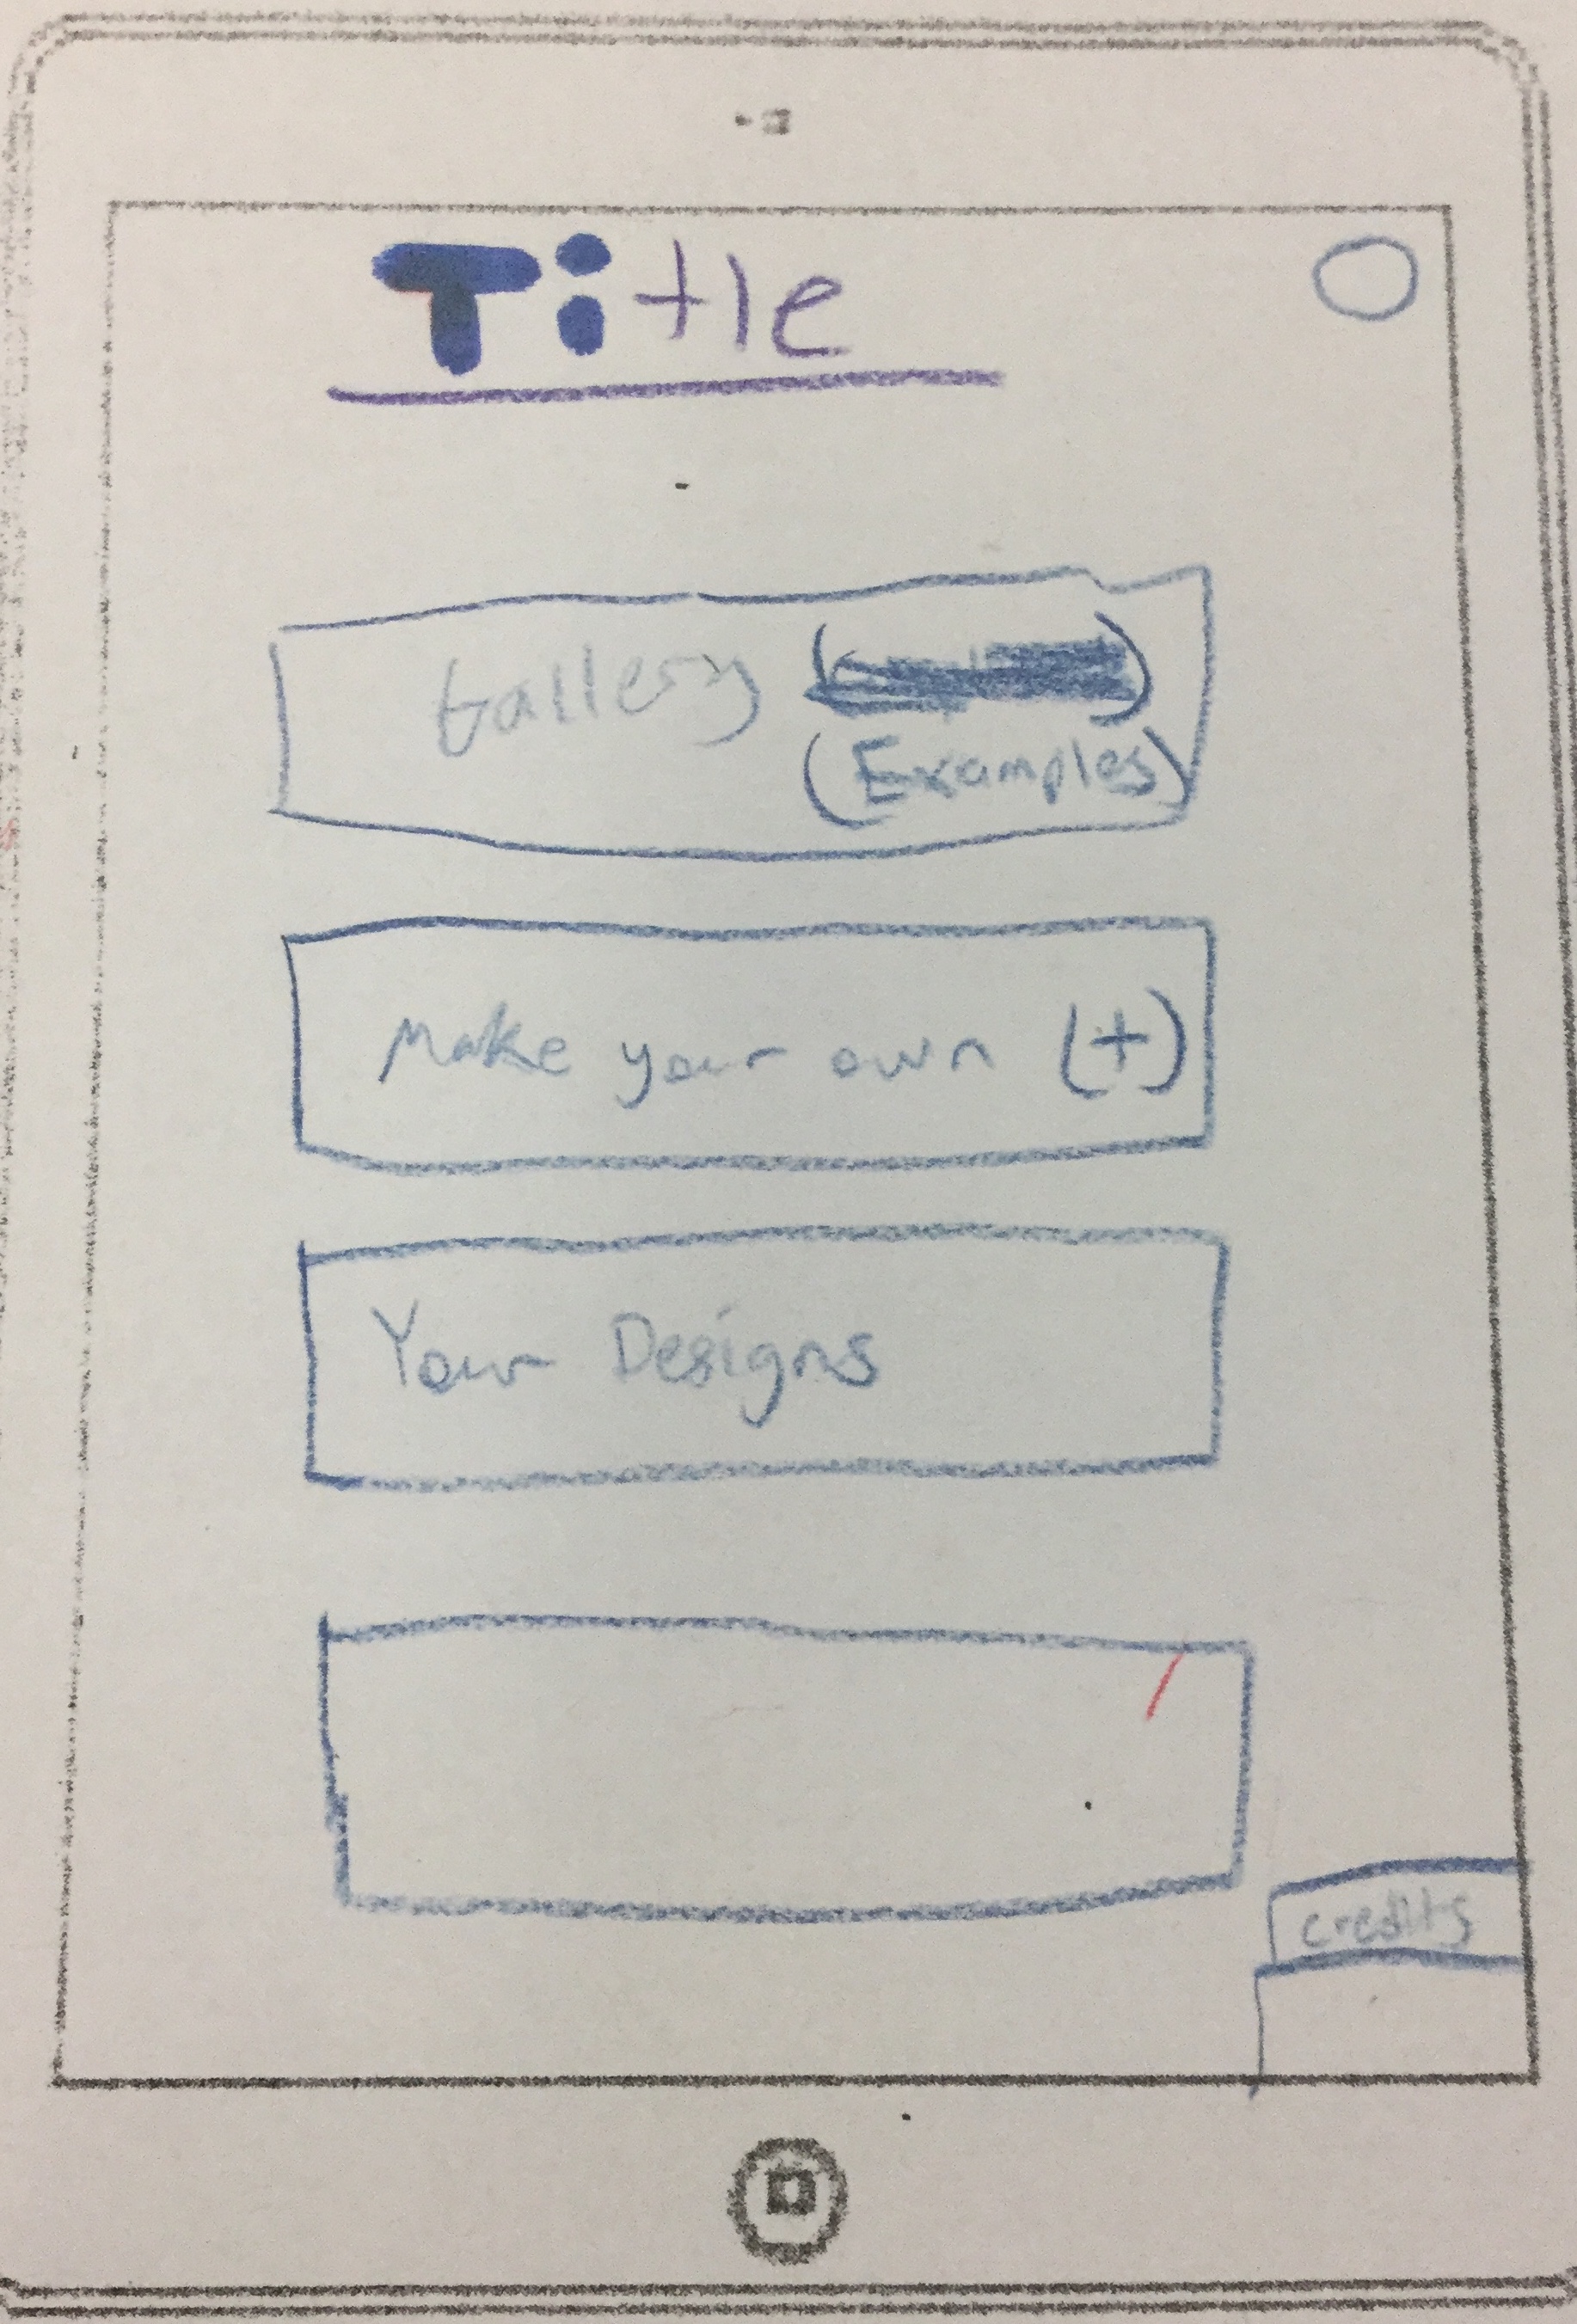 Title
Gallery
(Examples)
Make your own (+)
Your Designs
credits